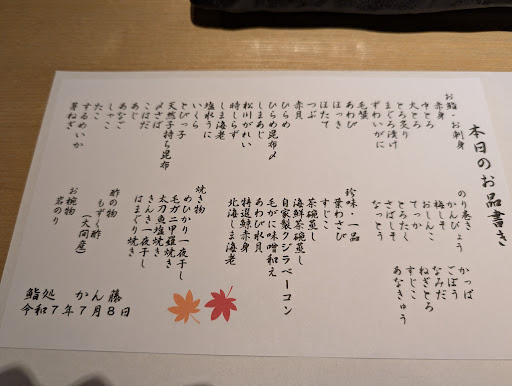 本日のお品書き
お鮨・お刺身
赤身
中とろ
大とろ
とろ炙り
まぐろ漬け
ずわいがに
毛蟹
あわび
ほっき
ほたて
つぶ
赤貝
ひらめ
ひらめ昆布〆
しまあじ
松川がれい
時しらず
しま海老
塩水うに
いくら
とびっ子
天然子持ち昆布
〆さば
こはだ
あじ
あなご
しゃこ
たこ
するめいか
芽ねぎ
のり巻き
かんぴょう
梅しそ
おしんこ
てっか
とろたく
さばしそ
なっとう
かっぱ
ごぼう
なみだ
ねぎとろ
すじこ
あなきゅう
珍味・一品
葉わさび
すじこ
茶碗蒸し
海鮮茶碗蒸し
自家製クジラベーコン
毛がに味噌和え
あわび水貝
特選鯨赤身
北海しま海老
焼き物
めひかり一夜干し
毛ガニ甲羅焼き
太刀魚塩焼き
きんき一夜干し
はまぐり焼き
酢の物
もずく酢
(大間産)
お椀物
岩のり
鮨処 かん藤
令和7年7月8日